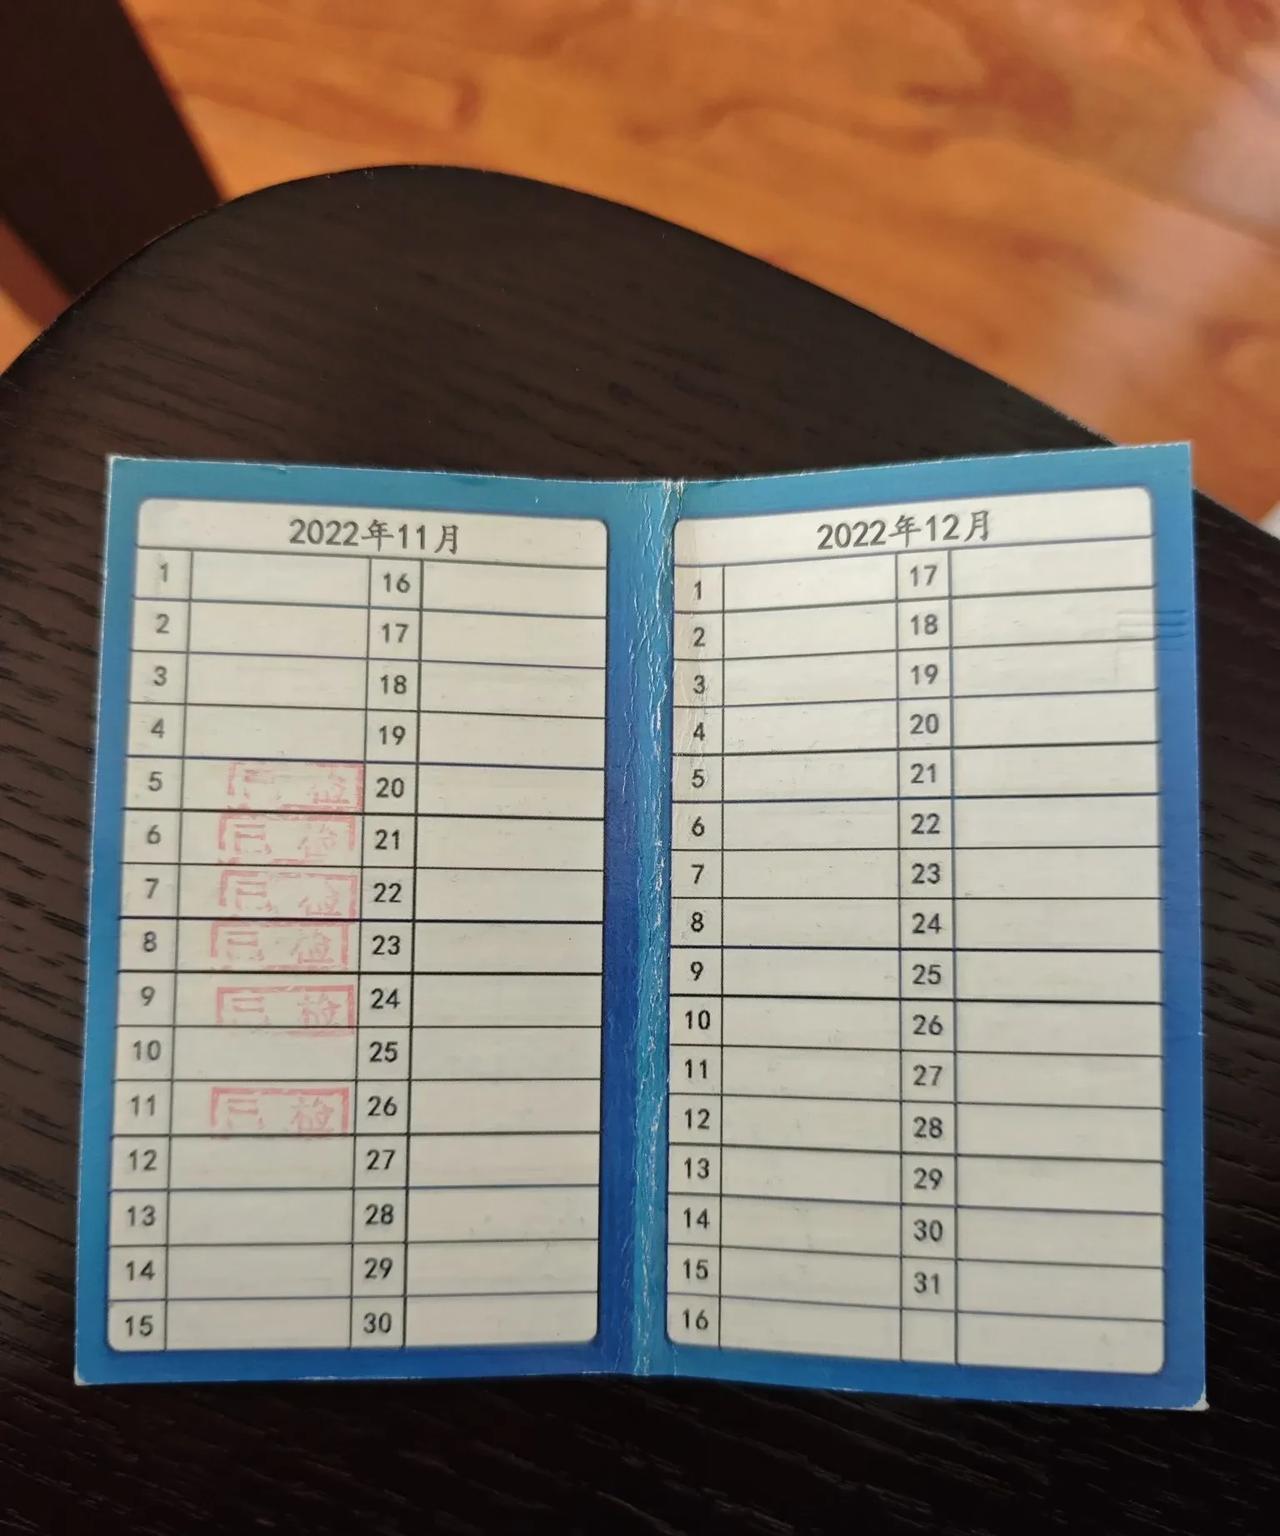 2022年11月
1 16
2 17
3 18
4 19
5 已检 20
6 已检 21
7 已检 22
8 已检 23
9 已检 24
10 25
11 已检 26
12 27
13 28
14 29
15 30
2022年12月
1 17
2 18
3 19
4 20
5 21
6 22
7 23
8 24
9 25
10 26
11 27
12 28
13 29
14 30
15 31
16